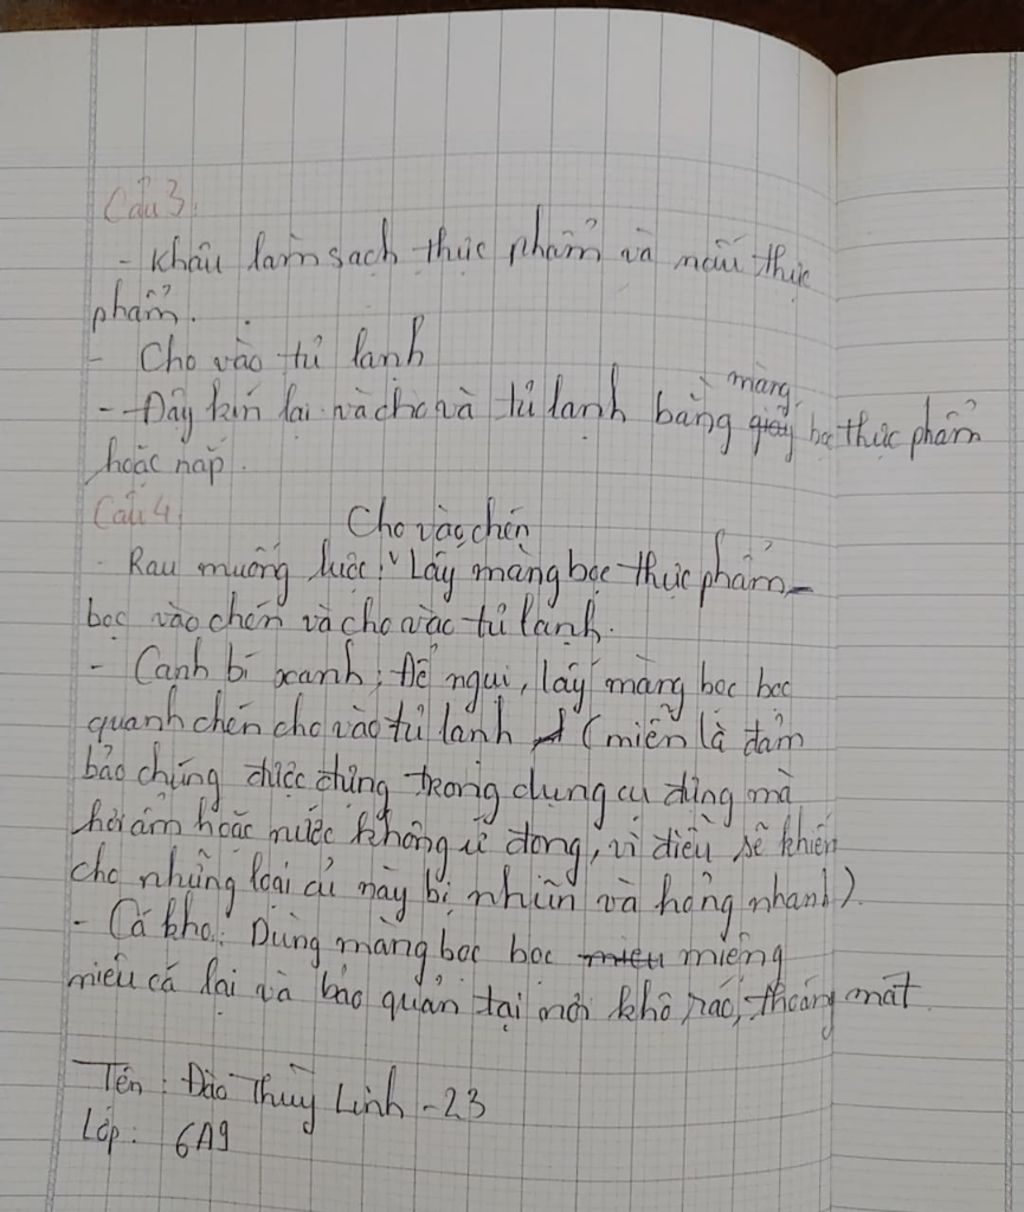 Câu 3:
- Khâu làm sạch thực phẩm và nấu thực
phẩm.
- Cho vào tủ lạnh
- - Đậy kín lại và cho và tủ lạnh bằng màng giấy bọc thực phẩm
hoặc nắp.
Câu 4:
Cho vào chén
- Rau muống luộc: Lấy màng bọc thực phẩm
bọc vào chén và cho vào tủ lạnh.
- Canh bí xanh: Để nguội, lấy màng bọc bọc
quanh chén cho vào tủ lạnh (miễn là đảm
bảo chúng được đựng trong dụng cụ đựng mà
hơi ẩm hoặc nước không ứ đọng, vì điều sẽ khiến
cho những loại củ này bị nhũn và hỏng nhanh).
- Cá kho: Dùng màng bọc bọc miệng
miếu cá lại và bảo quản tại nơi khô ráo, thoáng mát.
Tên: Đào Thuỳ Linh - 23
Lớp: 6A9